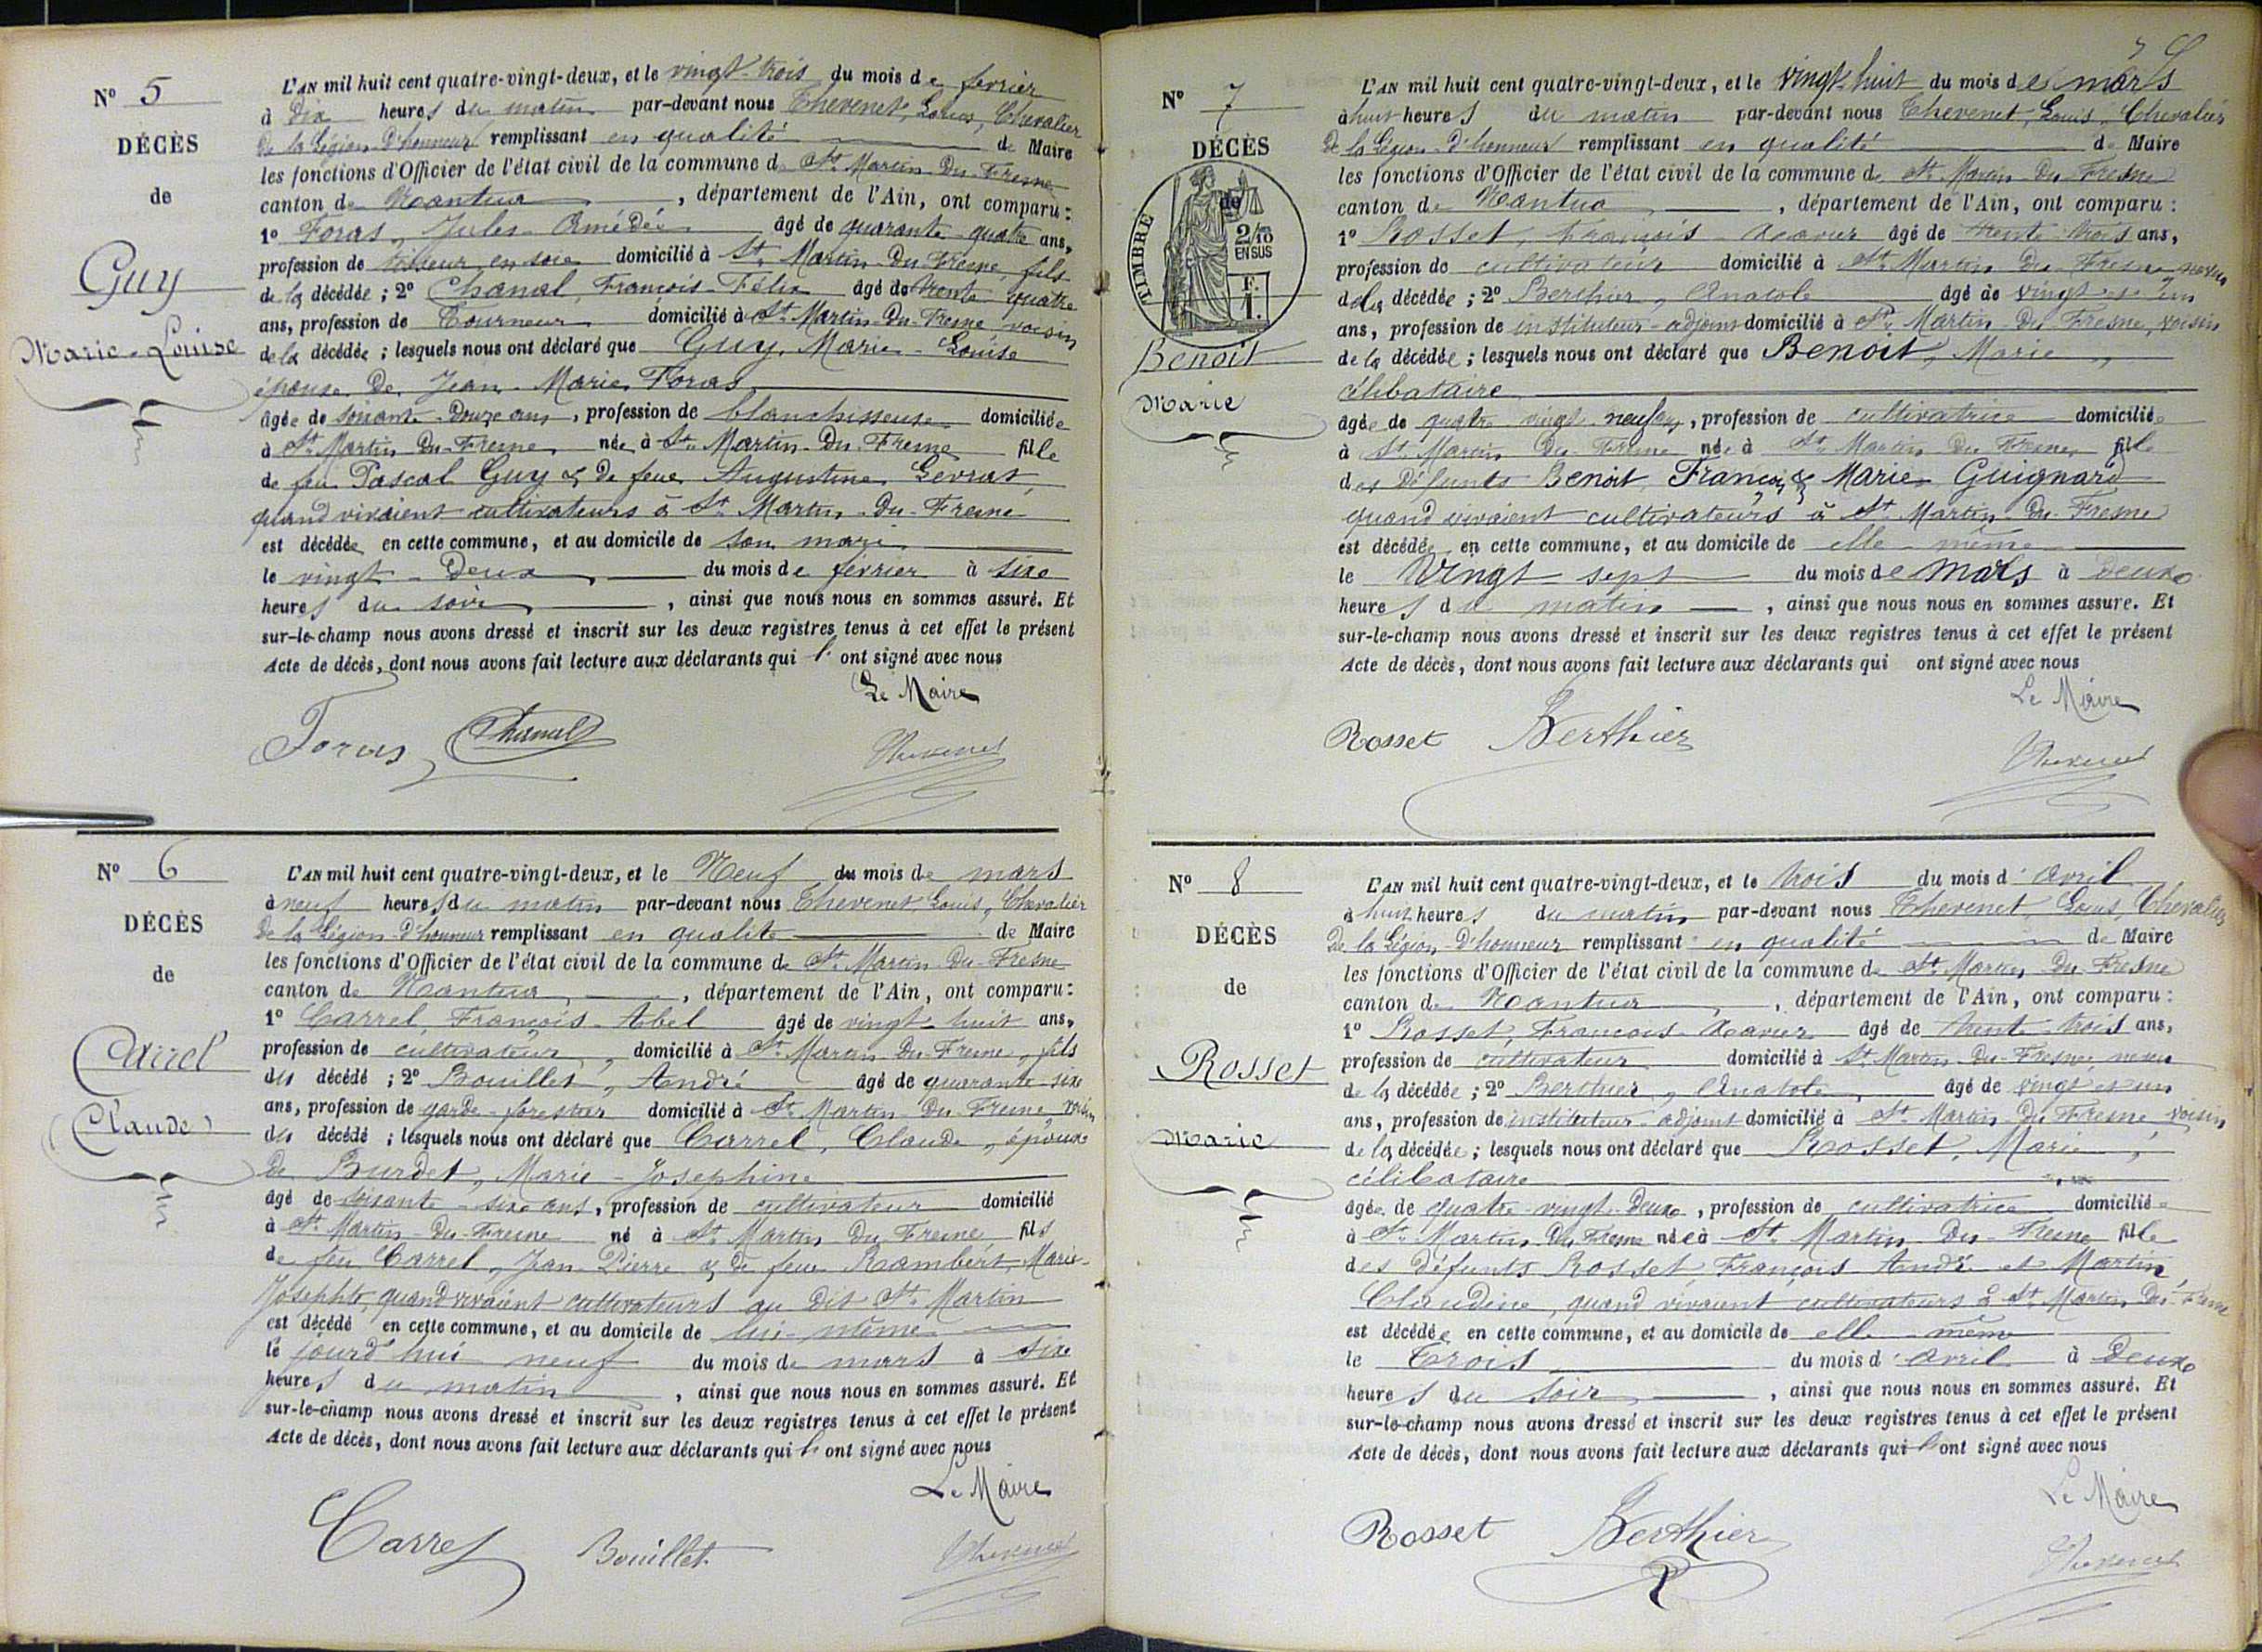 N° 5
DÉCÈS
de
Guy
Marie-Louise
L'AN mil huit cent quatre-vingt-deux, et le vingt-trois du mois de fevrier
à Dix heures du matin par-devant nous Thevenet, Louis, Chevalier
De la Légion-D'honneur remplissant en qualité de Maire
les fonctions d'Officier de l'état civil de la commune de St. Martin-Du-Fresne
canton de Nantua, département de l'Ain, ont comparu :
1° Foras, Jules-Amédée âgé de quarante-quatre ans,
profession de tisseur en soie domicilié à St. Martin-Du-Fresne, fils
de la décédée ; 2° Chanal, François-Félix âgé de trente-quatre
ans, profession de Tourneur domicilié à St. Martin-Du-Fresne voisin
de la décédée ; lesquels nous ont déclaré que Guy, Marie-Louise
épouse De Jean-Marie Foras
âgée de soixante-Douze ans, profession de blanchisseuse domiciliée
à St. Martin-Du-Fresne née à St. Martin-Du-Fresne fille
de feu Pascal Guy & De feue Augustine Levrat,
quand vivaient cultivateurs à St. Martin-Du-Fresne
est décédée en cette commune, et au domicile de son mari
le vingt-Deux du mois de février à six
heures du soir, ainsi que nous nous en sommes assuré. Et
sur-le-champ nous avons dressé et inscrit sur les deux registres tenus à cet effet le présent
Acte de décès, dont nous avons fait lecture aux déclarants qui l' ont signé avec nous
Le Maire
Foras Chanal Thevenet
N° 6
DÉCÈS
de
Carrel
Claude
L'AN mil huit cent quatre-vingt-deux, et le Neuf du mois de mars
à neuf heures du matin par-devant nous Thevenet, Louis, Chevalier
De la Légion-D'honneur remplissant en qualité de Maire
les fonctions d'Officier de l'état civil de la commune de St. Martin-Du-Fresne
canton de Nantua, département de l'Ain, ont comparu :
1° Carrel, François-Abel âgé de vingt-huit ans,
profession de cultivateur, domicilié à St. Martin-Du-Fresne, fils
du décédé ; 2° Bouillet, André âgé de quarante-six
ans, profession de garde-forestier domicilié à St. Martin-Du-Fresne voisin
du décédé ; lesquels nous ont déclaré que Carrel, Claude, époux
De Burdet, Marie-Josephine
âgé de soixante-six ans, profession de cultivateur domicilié
à St. Martin-Du-Fresne né à St. Martin Du Fresne fils
de feu Carrel, Jean-Pierre & De feue Rambert, Marie-
Josephte, quand vivaient cultivateurs au Dit St. Martin
est décédé en cette commune, et au domicile de lui-même
le jourd'hui neuf du mois de mars à six
heures du matin, ainsi que nous nous en sommes assuré. Et
sur-le-champ nous avons dressé et inscrit sur les deux registres tenus à cet effet le présent
Acte de décès, dont nous avons fait lecture aux déclarants qui l' ont signé avec nous
Le Maire
Carrel Bouillet Thevenet
N° 7
DÉCÈS
de
TIMBRE
2/10
EN SUS
F.
1.
Benoit
Marie
L'AN mil huit cent quatre-vingt-deux, et le vingt-huit du mois de mars
à huit heures du matin par-devant nous Thevenet, Louis, Chevalier
De la Légion-D'honneur remplissant en qualité de Maire
les fonctions d'Officier de l'état civil de la commune de St. Martin-Du-Fresne
canton de Nantua, département de l'Ain, ont comparu :
1° Rosset, François-Xavier âgé de trente-trois ans,
profession de cultivateur domicilié à St. Martin-Du-Fresne neveu
de la décédée ; 2° Berthier, Anatole âgé de vingt et un
ans, profession de instituteur-adjoint domicilié à St. Martin-Du-Fresne, voisin
de la décédée ; lesquels nous ont déclaré que Benoit, Marie,
célibataire
âgée de quatre-vingt-neuf ans, profession de cultivatrice domiciliée
à St. Martin-Du-Fresne née à St. Martin-Du-Fresne, fille
des Défunts Benoit, François & Marie Guignard
quand vivaient cultivateurs à St. Martin-Du-Fresne
est décédée en cette commune, et au domicile de elle-même
le Vingt-sept du mois de mars à Deux
heures du matin, ainsi que nous nous en sommes assuré. Et
sur-le-champ nous avons dressé et inscrit sur les deux registres tenus à cet effet le présent
Acte de décès, dont nous avons fait lecture aux déclarants qui ont signé avec nous
Le Maire
Rosset Berthier Thevenet
N° 8
DÉCÈS
de
Rosset
Marie
L'AN mil huit cent quatre-vingt-deux, et le trois du mois d'avril
à huit heures du matin par-devant nous Thevenet, Louis, Chevalier
De la Légion-D'honneur remplissant en qualité de Maire
les fonctions d'Officier de l'état civil de la commune de St. Martin-Du-Fresne
canton de Nantua, département de l'Ain, ont comparu :
1° Rosset, François-Xavier âgé de trente-trois ans,
profession de cultivateur domicilié à St. Martin-Du-Fresne, neveu
de la décédée ; 2° Berthier, Anatole, âgé de vingt et un
ans, profession de instituteur-adjoint domicilié à St. Martin-Du-Fresne voisin
de la décédée ; lesquels nous ont déclaré que Rosset, Marie,
célibataire
âgée de quatre-vingt-Deux, profession de cultivatrice domiciliée
à St. Martin-Du-Fresne née à St. Martin-Du-Fresne fille
des Défunts Rosset, François André et Martin
Claudine, quand vivaient cultivateurs à St. Martin-Du-Fresne
est décédée en cette commune, et au domicile de elle-même
le Trois du mois d'avril à Deux
heures du soir, ainsi que nous nous en sommes assuré. Et
sur-le-champ nous avons dressé et inscrit sur les deux registres tenus à cet effet le présent
Acte de décès, dont nous avons fait lecture aux déclarants qui l' ont signé avec nous
Le Maire
Rosset Berthier Thevenet